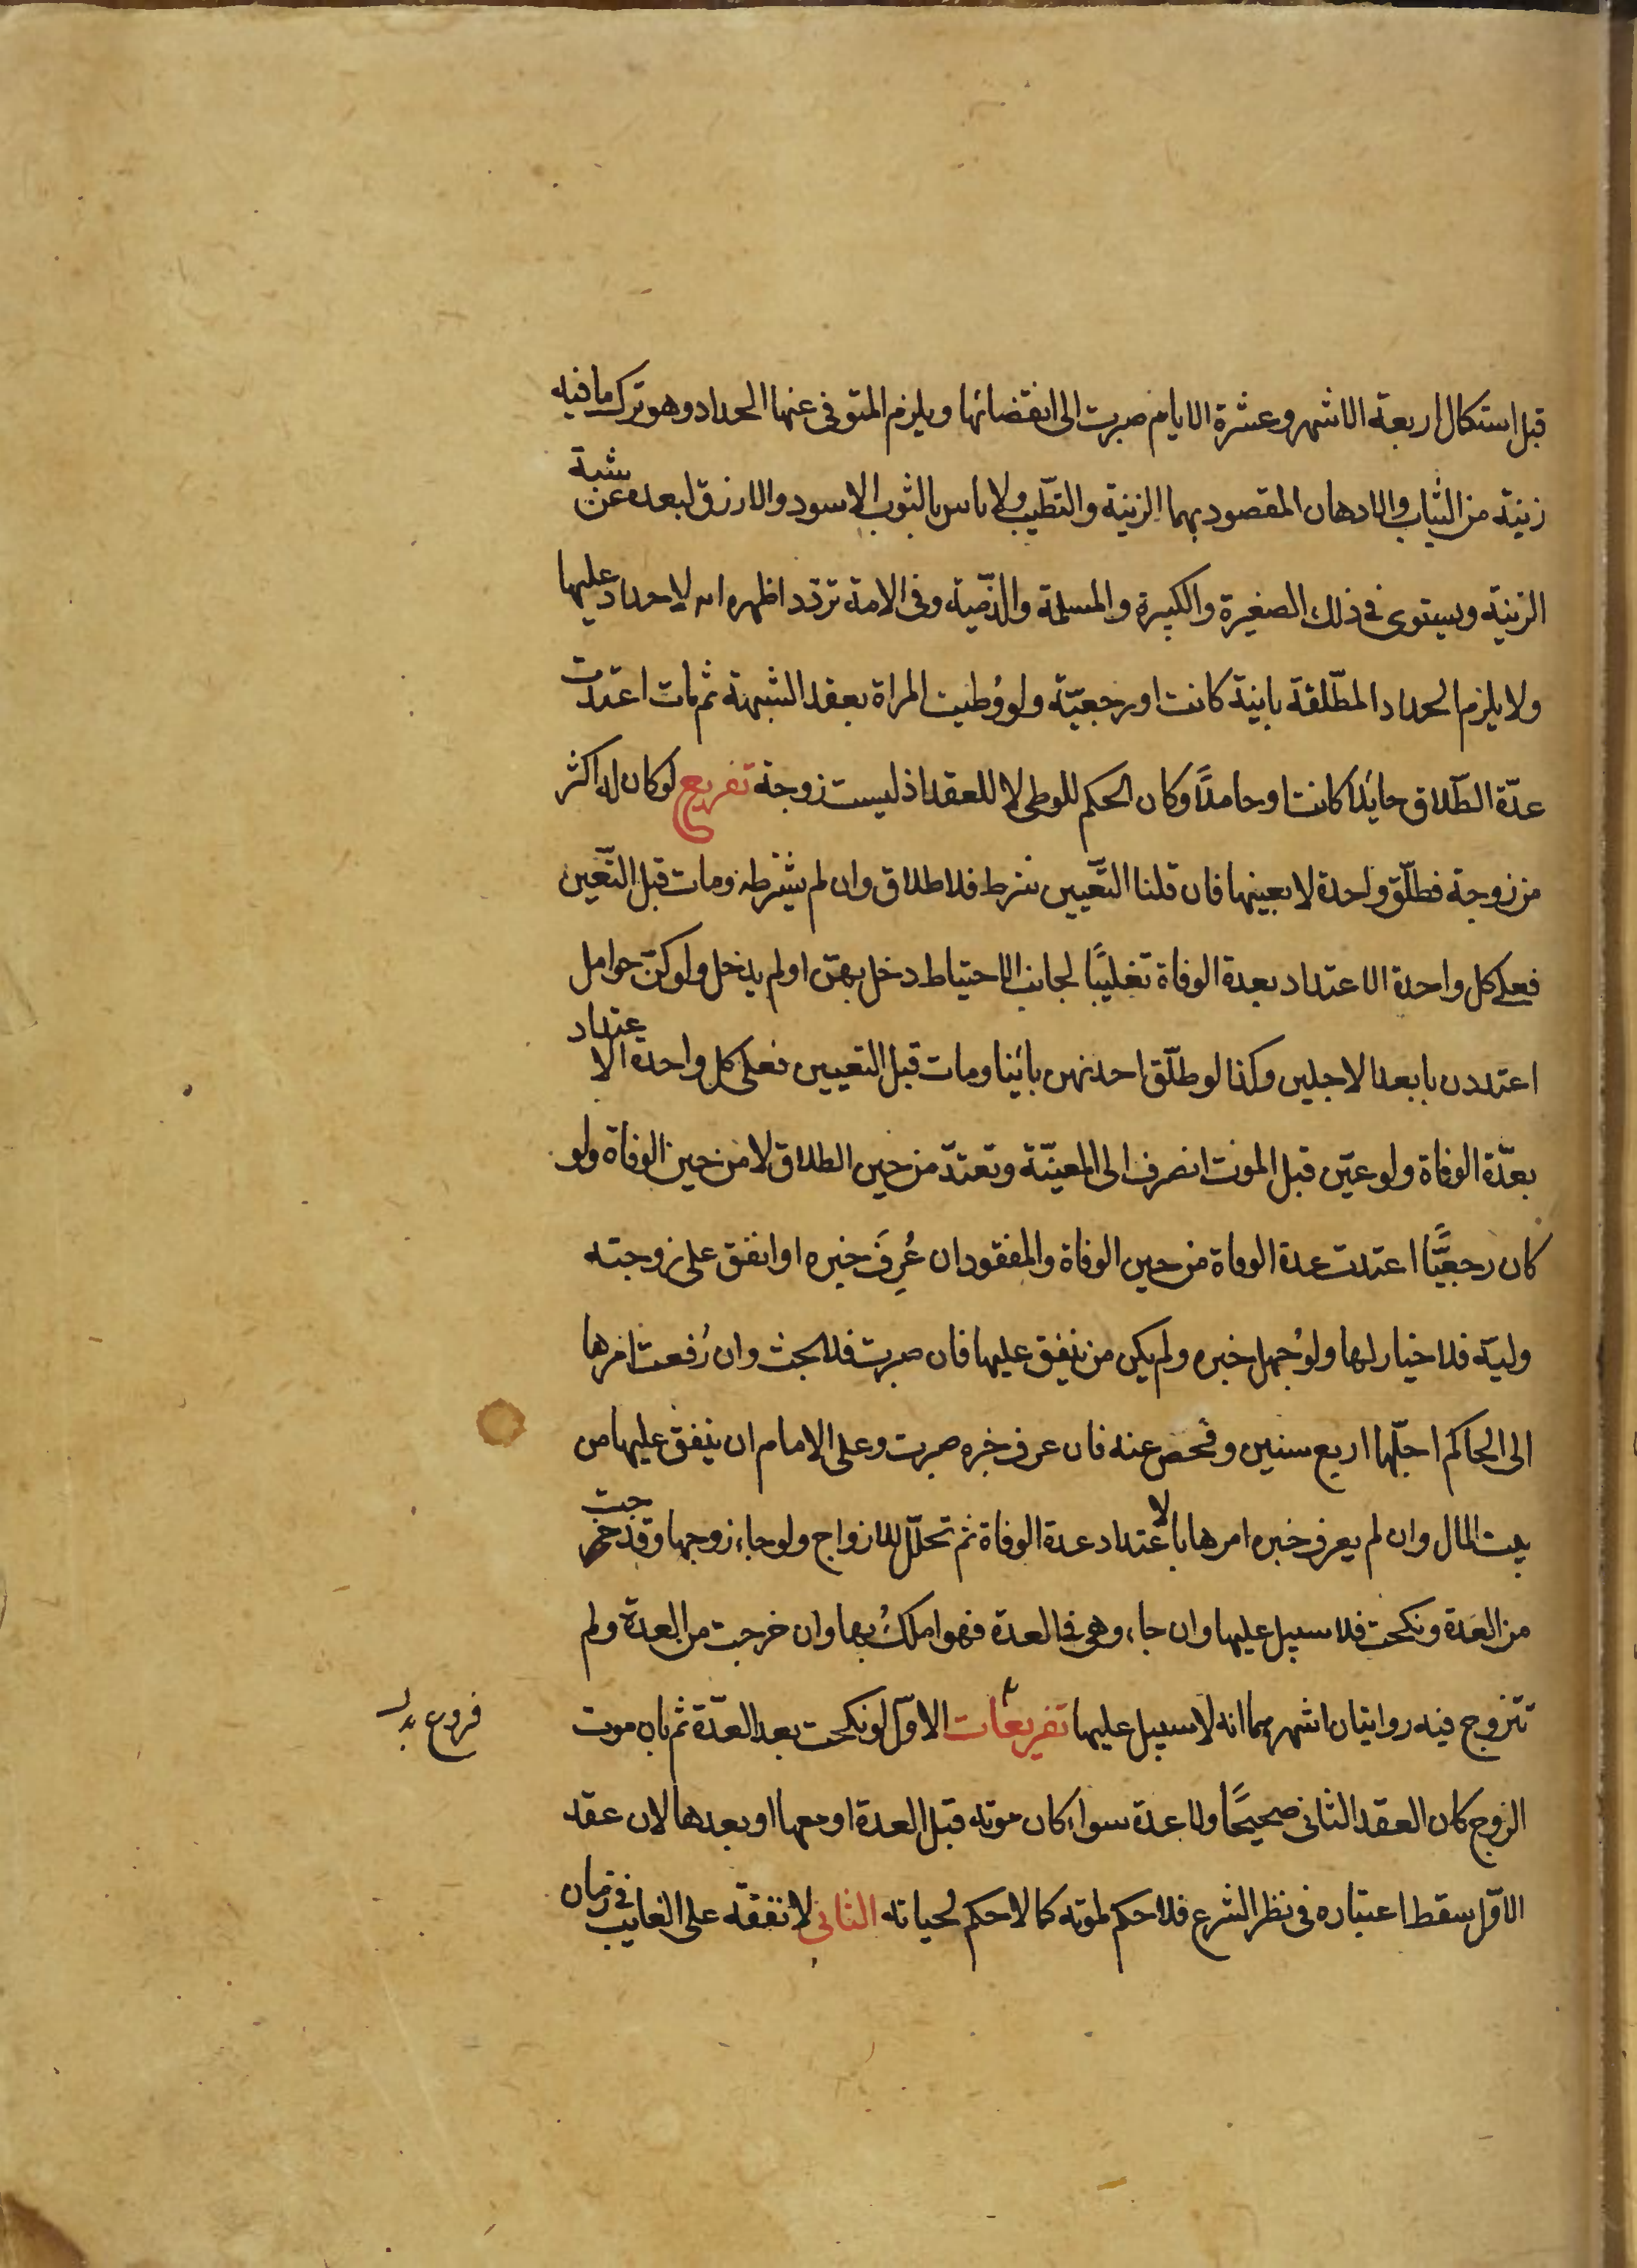 قبل استكمال اربعة الاشهر وعشرة الايام صبرت الى انقضائها ويلزم المتوفى عنها الحداد وهو ترك ما فيه
زينة من الثياب والادهان المقصود بهما الزينة والتطّيب ولا باس بالثوب الاسود والازرق لبعده عن شبة
الزينة ويستوى فى ذلك الصغيرة والكبيرة والمسلمة والذمّية وفى الامة تردّد اظهره انه لا حداد عليها
ولا يلزم الحداد المطلّقة باينة كانت او رجعيّة ولو وُطيت المراة بعقد الشبهة ثم مات اعتدت
عدّة الطّلاق حائلا كانت او حاملاً وكان الحكم للوطى لا للعقد اذ ليست زوجة تفريع لو كان له اكثر
من زوجة فطلّق واحدة لا بعينها فان قلنا التّعيين شرط فلا طلاق وان لم نشترطه ومات قبل التّعين
فعلى كل واحدة الاعتداد بعدة الوفاة تغليبًا لجانب الاحتياط دخل بهنّ او لم يدخل ولو كنّ حوامل
اعتددن بابعد الاجلين وكذا لو طلّق احديهن بائنا ومات قبل التعيين فعلى كل واحدة الاعتداد
بعدّة الوفاة ولو عيّن قبل الموت انصرف الى المعيّنة وتعتدّ من حين الطلاق لا من حين الوفاة ولو
كان رجعيًّا اعتدت عدة الوفاة من حين الوفاة والمفقود ان عُرِفَ خبره او انفق على زوجته
وليّه فلا خيار لها ولو جُهل خبره ولم يكن من ينفق عليها فان صبرت فلا بحث وان رُفعت امرها
الى الحاكم اجّلها اربع سنين وفحص عنه فان عرف خبره صبرت وعلى الامام ان ينفق عليها من
بيت المال وان لم يعرف خبره امرها بالاعتداد عدة الوفاة ثم تحلّل للازواج ولو جاء زوجها وقد خرجت
من العدة ونكحت فلا سبيل عليها وان جاء وهى فى العدة فهو املكُ بها وان خرجت من العدة ولم
تتزوج فيه روايتان اشهرهما انه لا سبيل عليها تفريعات الاوّل لو نكحت بعد العدّة ثم بان موت
فروع
الزوج كان العقد الثانى صحيحًا ولا عدة سواء كان موته قبل العدة او معها او بعدها لان عقد
الاوّل سقط اعتباره فى نظر الشرع فلا حكم لموته كما لا حكم لحياته الثانى لا نفقة على الغايب فى زمان